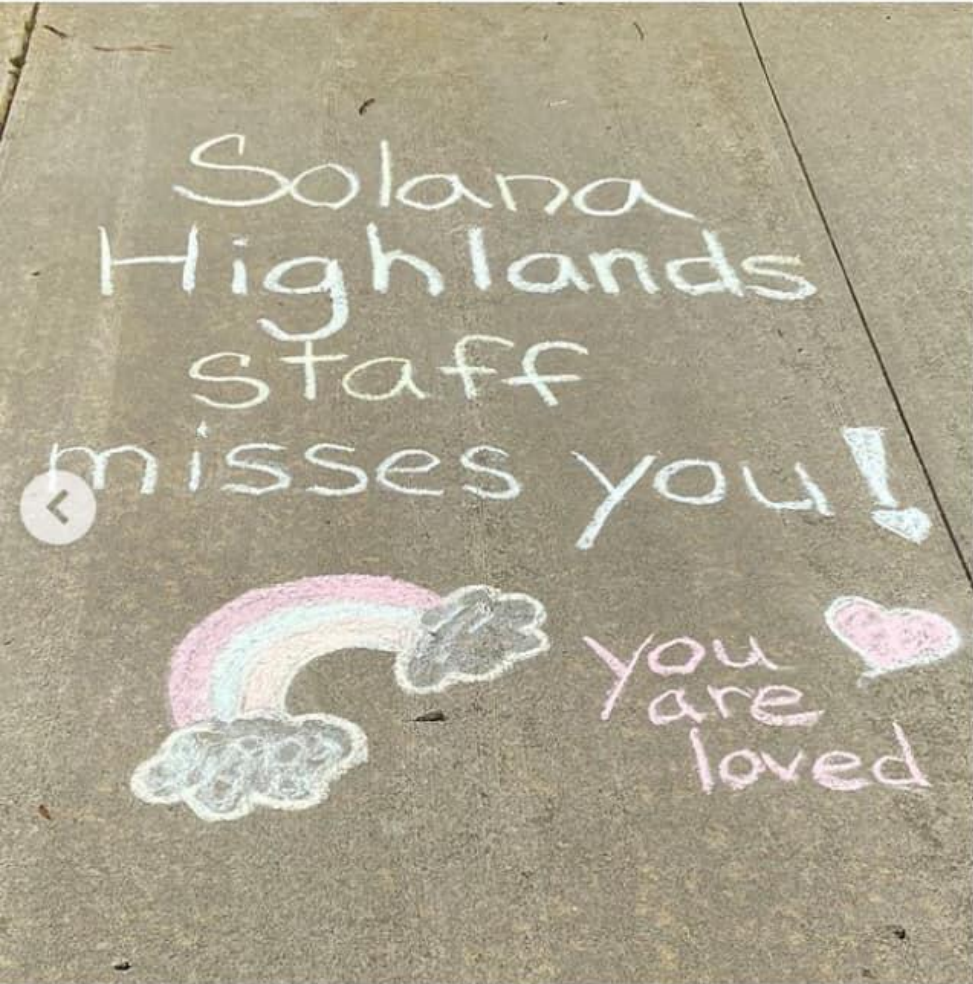 Solana
Highlands
staff
misses you!
you
are
loved